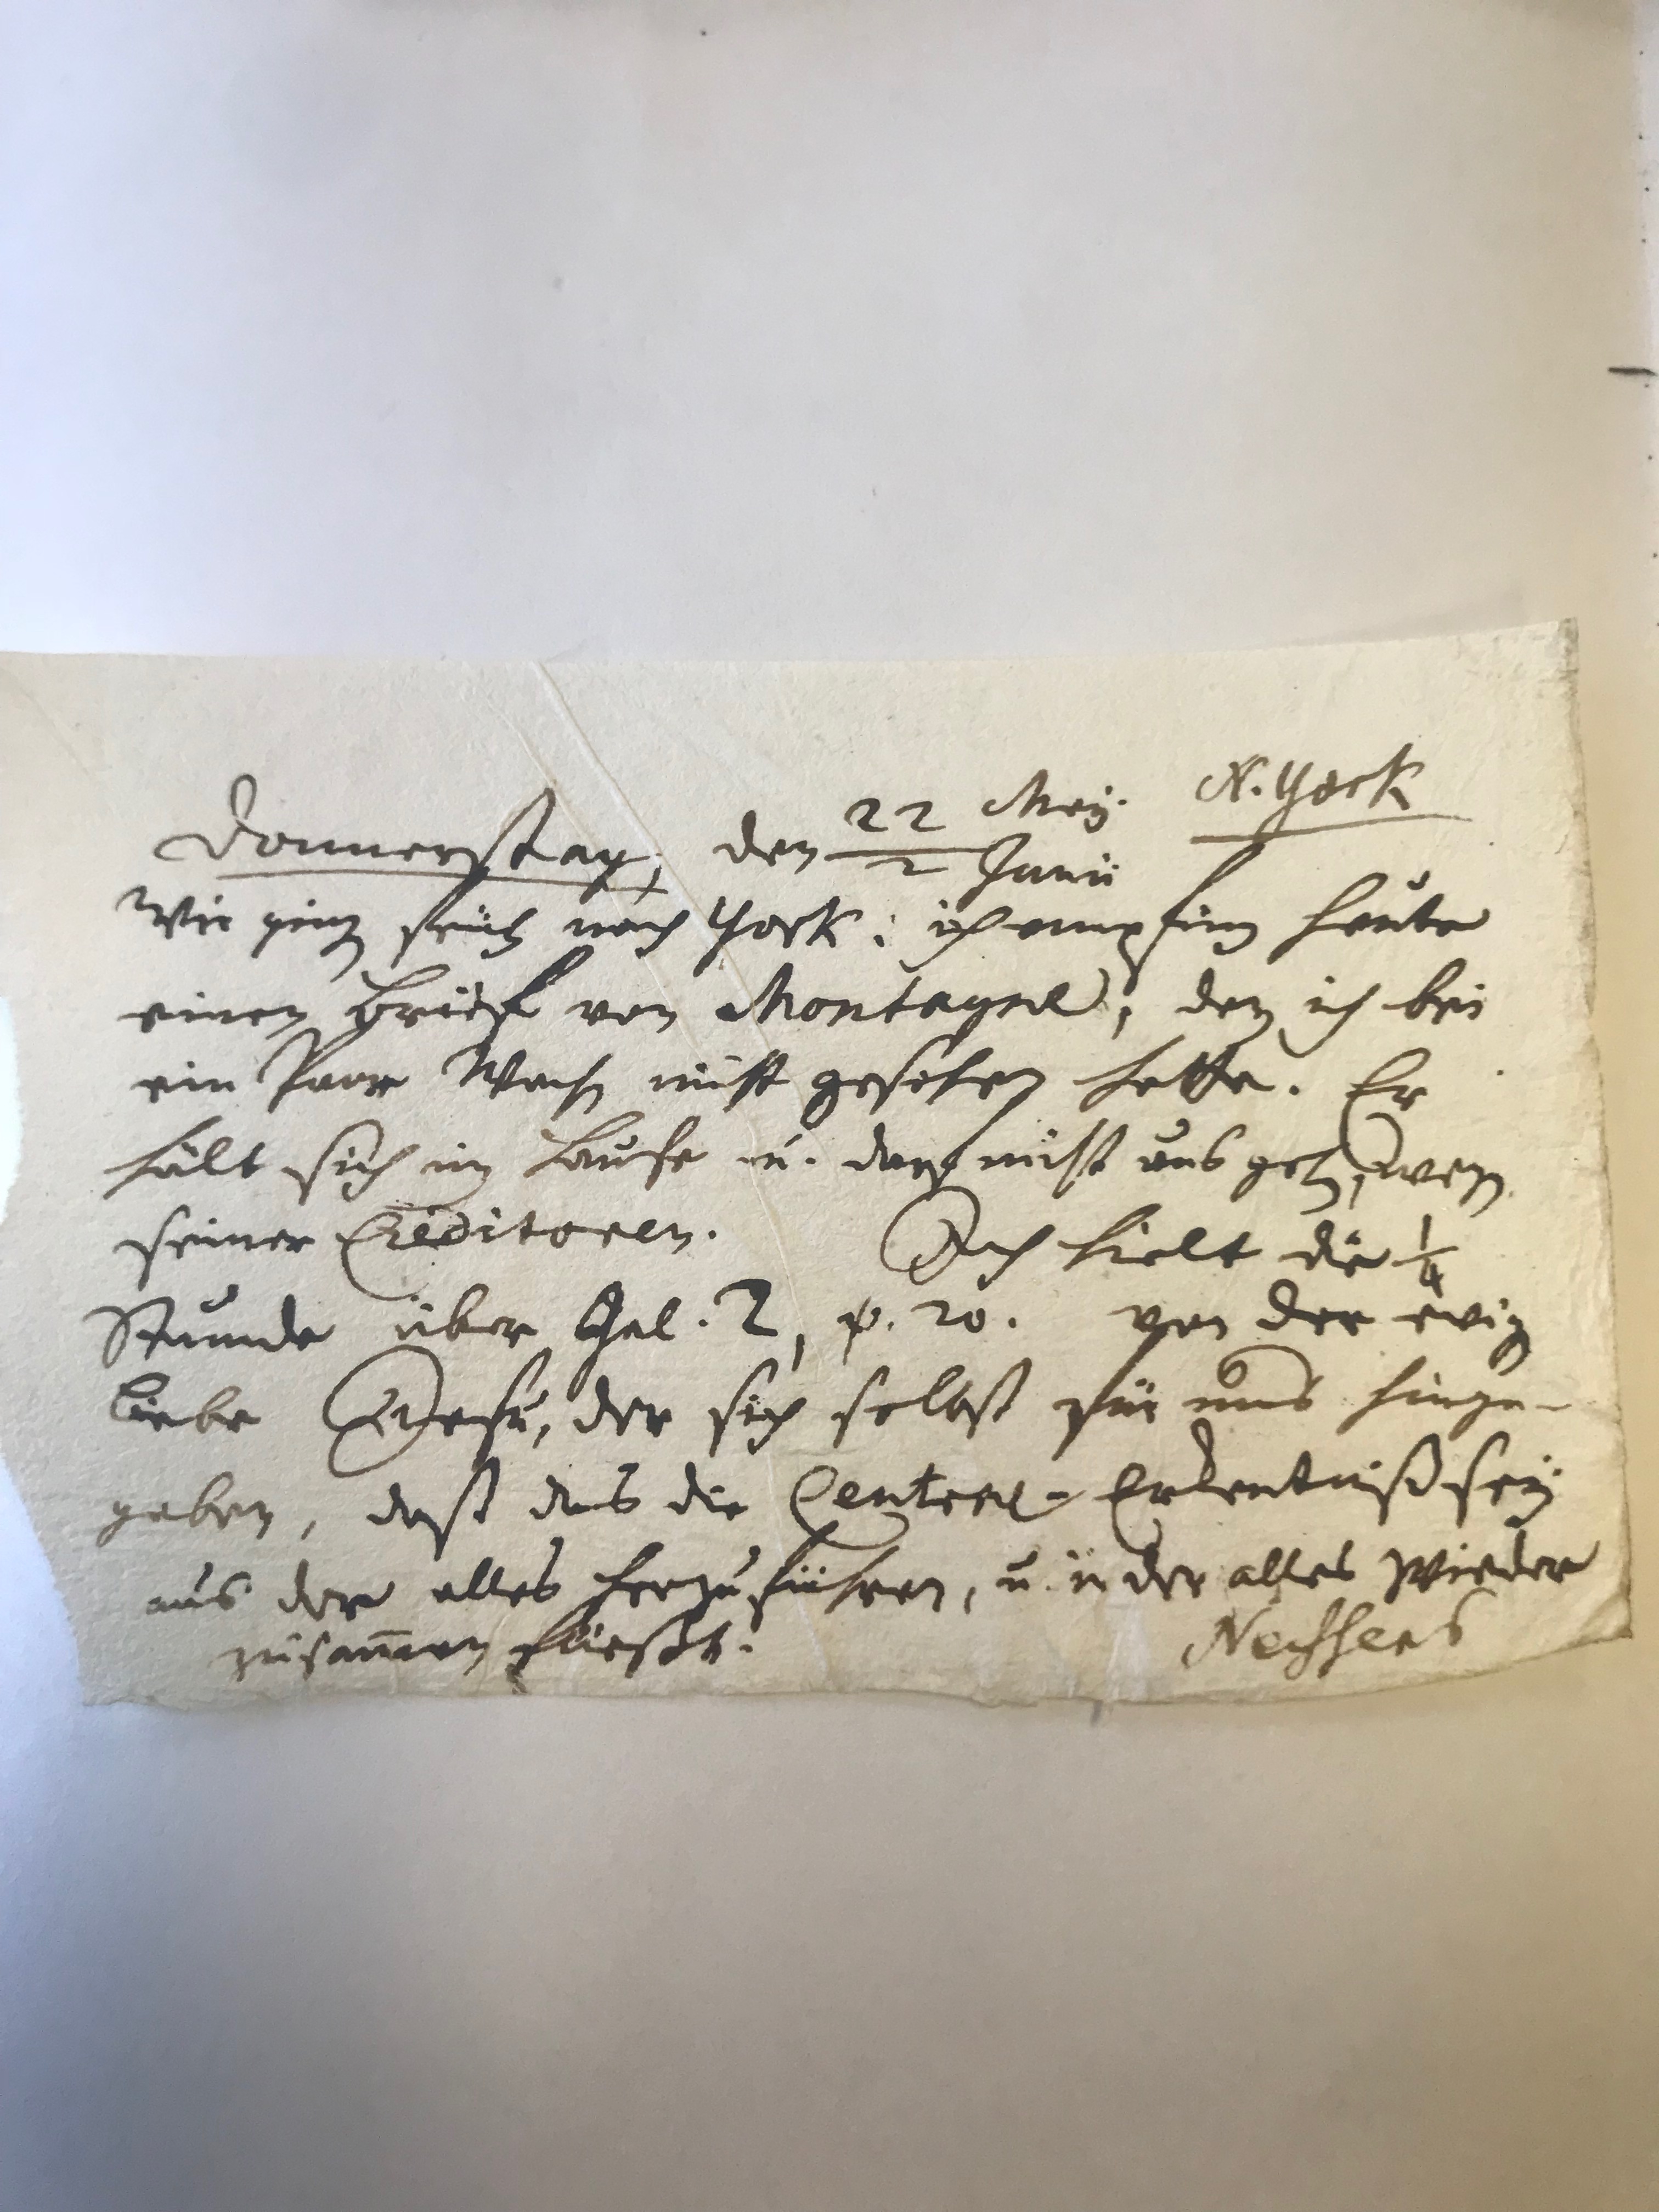 Donnerstag, den 22 Mey. / 2 Junii N. York
Wir ging früh nach York: ich empfing heute
einen Brief von Montagne, den ich bei
ein Paar Woch nicht gesehen hatte. Er
hält sich im Hause u. darf nicht aus geh, weg.
seiner Creditoren. Ich hielt die ¼
Stunde über Gal. 2, p. 20. von der ewig
Liebe Jesu, der sich selbst für uns hinge-
geben, daß das die Central-Erkentniß sey
aus der alles herzuführen, u. in der alles wieder
zusam̅en fließt.